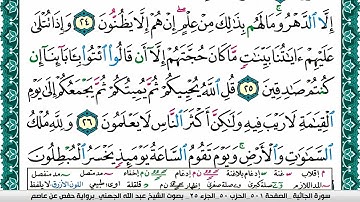 إِلَّا ٱلدَّهْرُ وَمَا لَهُم بِذَٰلِكَ مِنْ عِلْمٍ ۖ إِنْ هُمْ إِلَّا يَظُنُّونَ ٢٤ وَإِذَا تُتْلَىٰ
عَلَيْهِمْ ءَايَٰتُنَا بَيِّنَٰتٍ مَّا كَانَ حُجَّتَهُمْ إِلَّآ أَن قَالُوا۟ ٱئْتُوا۟ بِـَٔابَآئِنَآ إِن
كُنتُمْ صَٰدِقِينَ ٢٥ قُلِ ٱللَّهُ يُحْيِيكُمْ ثُمَّ يُمِيتُكُمْ ثُمَّ يَجْمَعُكُمْ إِلَىٰ يَوْمِ
ٱلْقِيَٰمَةِ لَا رَيْبَ فِيهِ وَلَٰكِنَّ أَكْثَرَ ٱلنَّاسِ لَا يَعْلَمُونَ ٢٦ وَلِلَّهِ مُلْكُ
ٱلسَّمَٰوَٰتِ وَٱلْأَرْضِ ۚ وَيَوْمَ تَقُومُ ٱلسَّاعَةُ يَوْمَئِذٍ يَخْسَرُ ٱلْمُبْطِلُونَ
سورة الجاثية _ الصفحة ٥٠١ _ الحزب ٥٠ _ الجزء ٢٥ _ بصوت الشيخ عبد الله الجهني _ برواية حفص عن عاصم